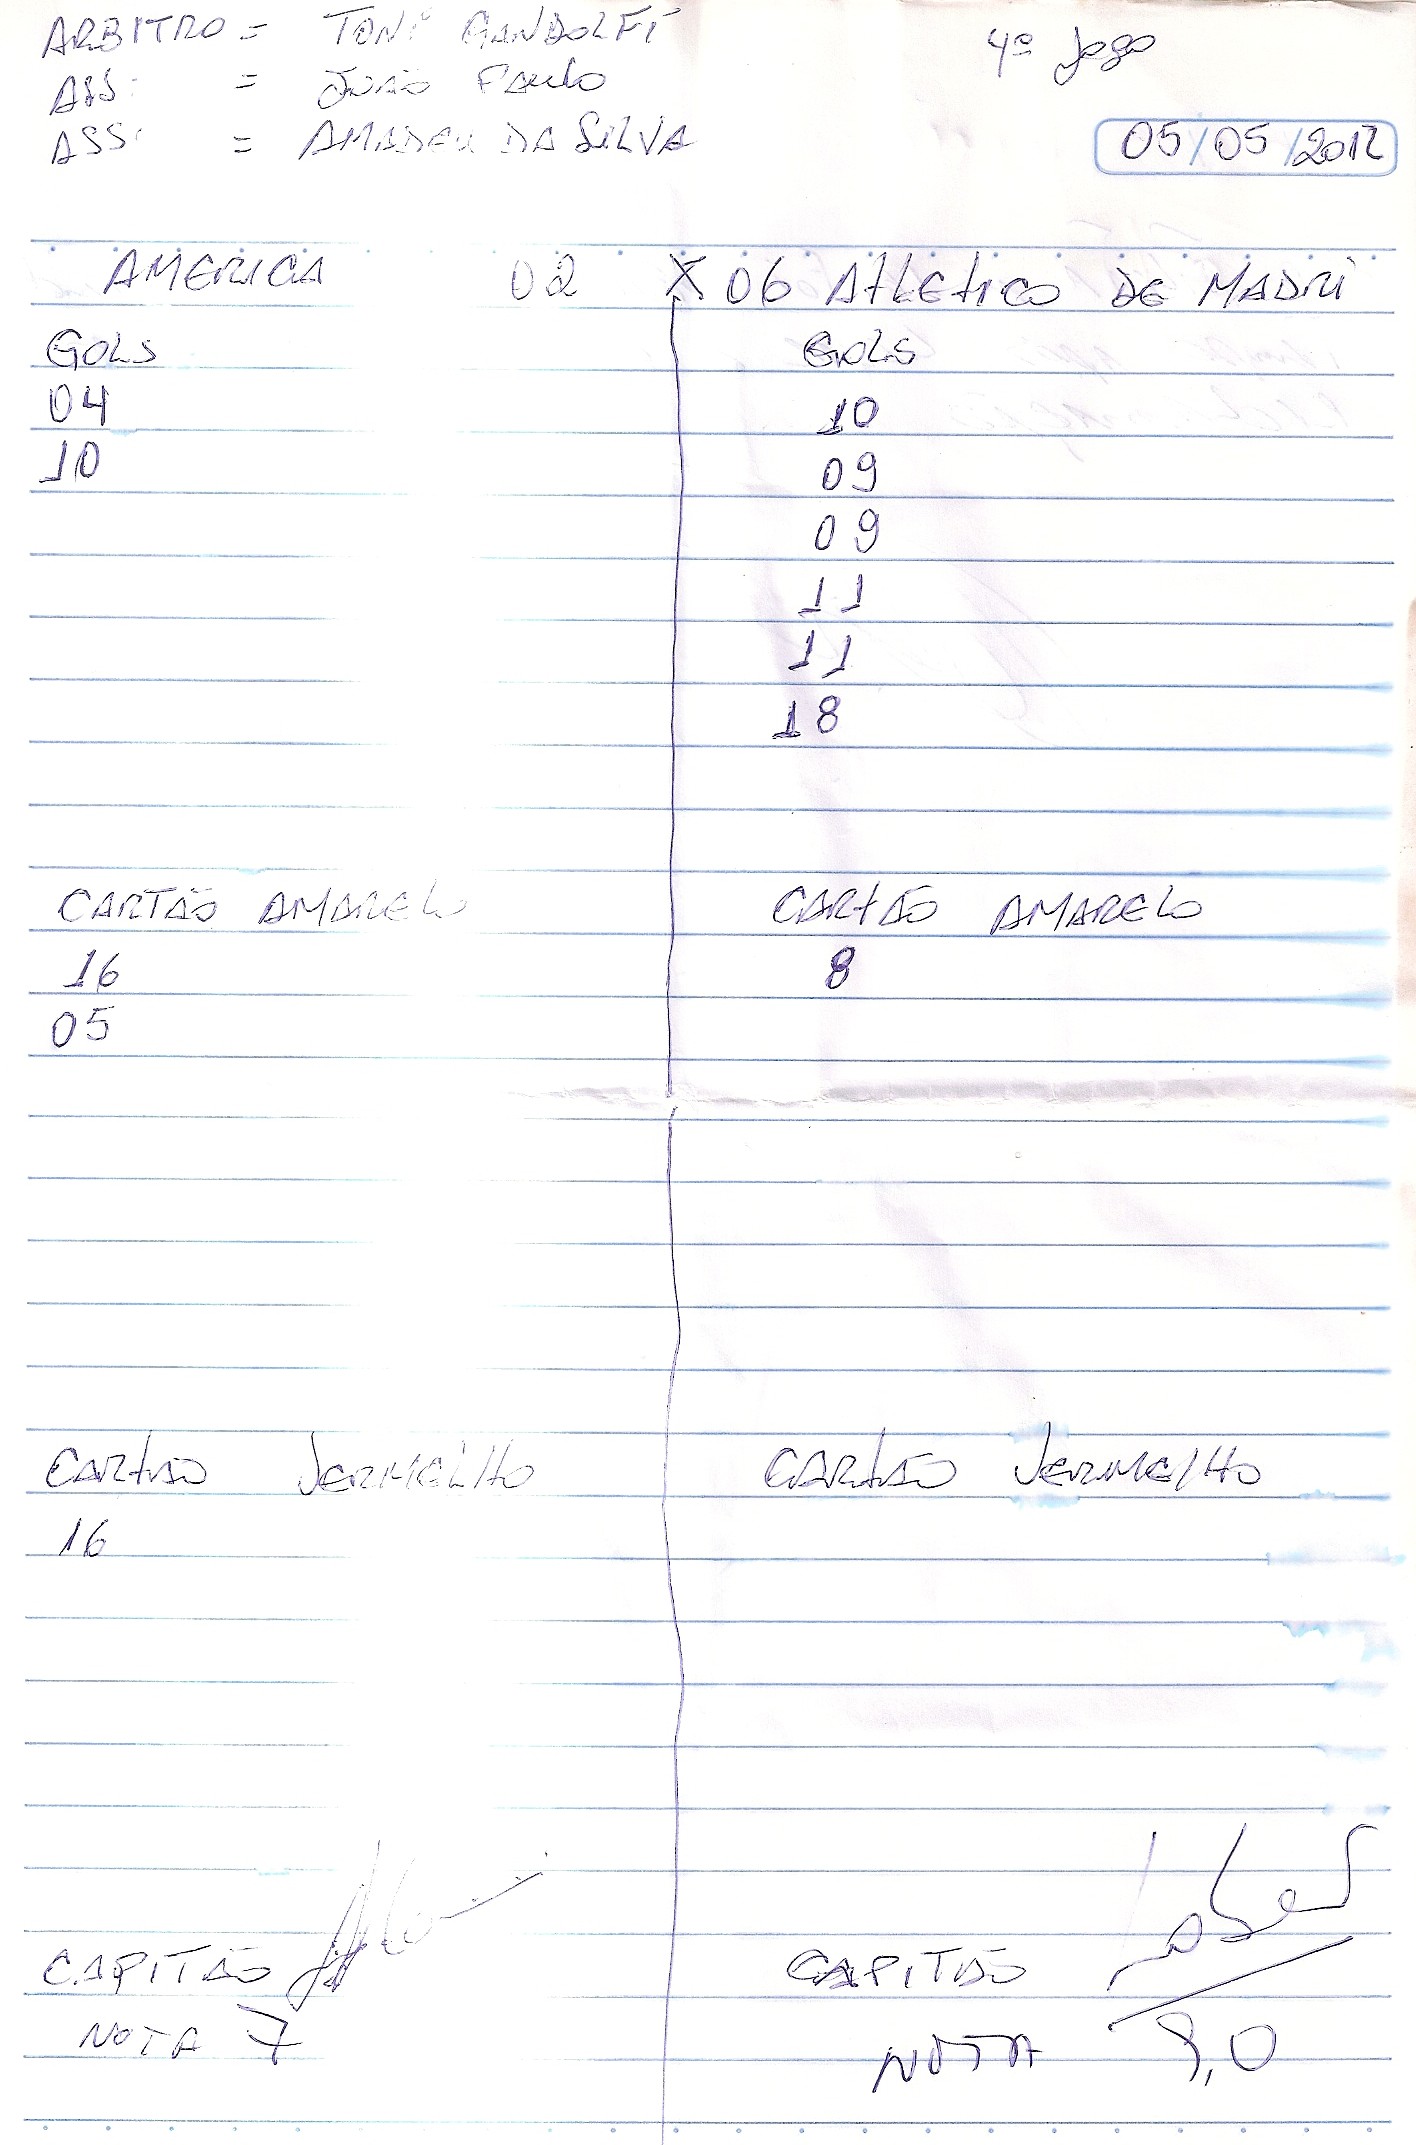 ARBITRO = TONI GANDOLFI
4º Jogo
ASS: = João Paulo
ASS: = AMADEU DA SILVA
05/05/2012
AMERICA 02 X 06 ATLETICO DE MADRI
GOLS GOLS
04 10
10 09
09
11
11
18
CARTÃO AMARELO CARTÃO AMARELO
16 8
05
CARTÃO VERMELHO CARTÃO VERMELHO
16
CAPITÃO CAPITÃO
NOTA 7 NOTA